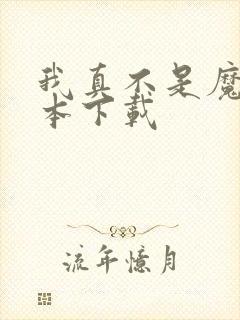 我真不是魔
本下载
流年憶月